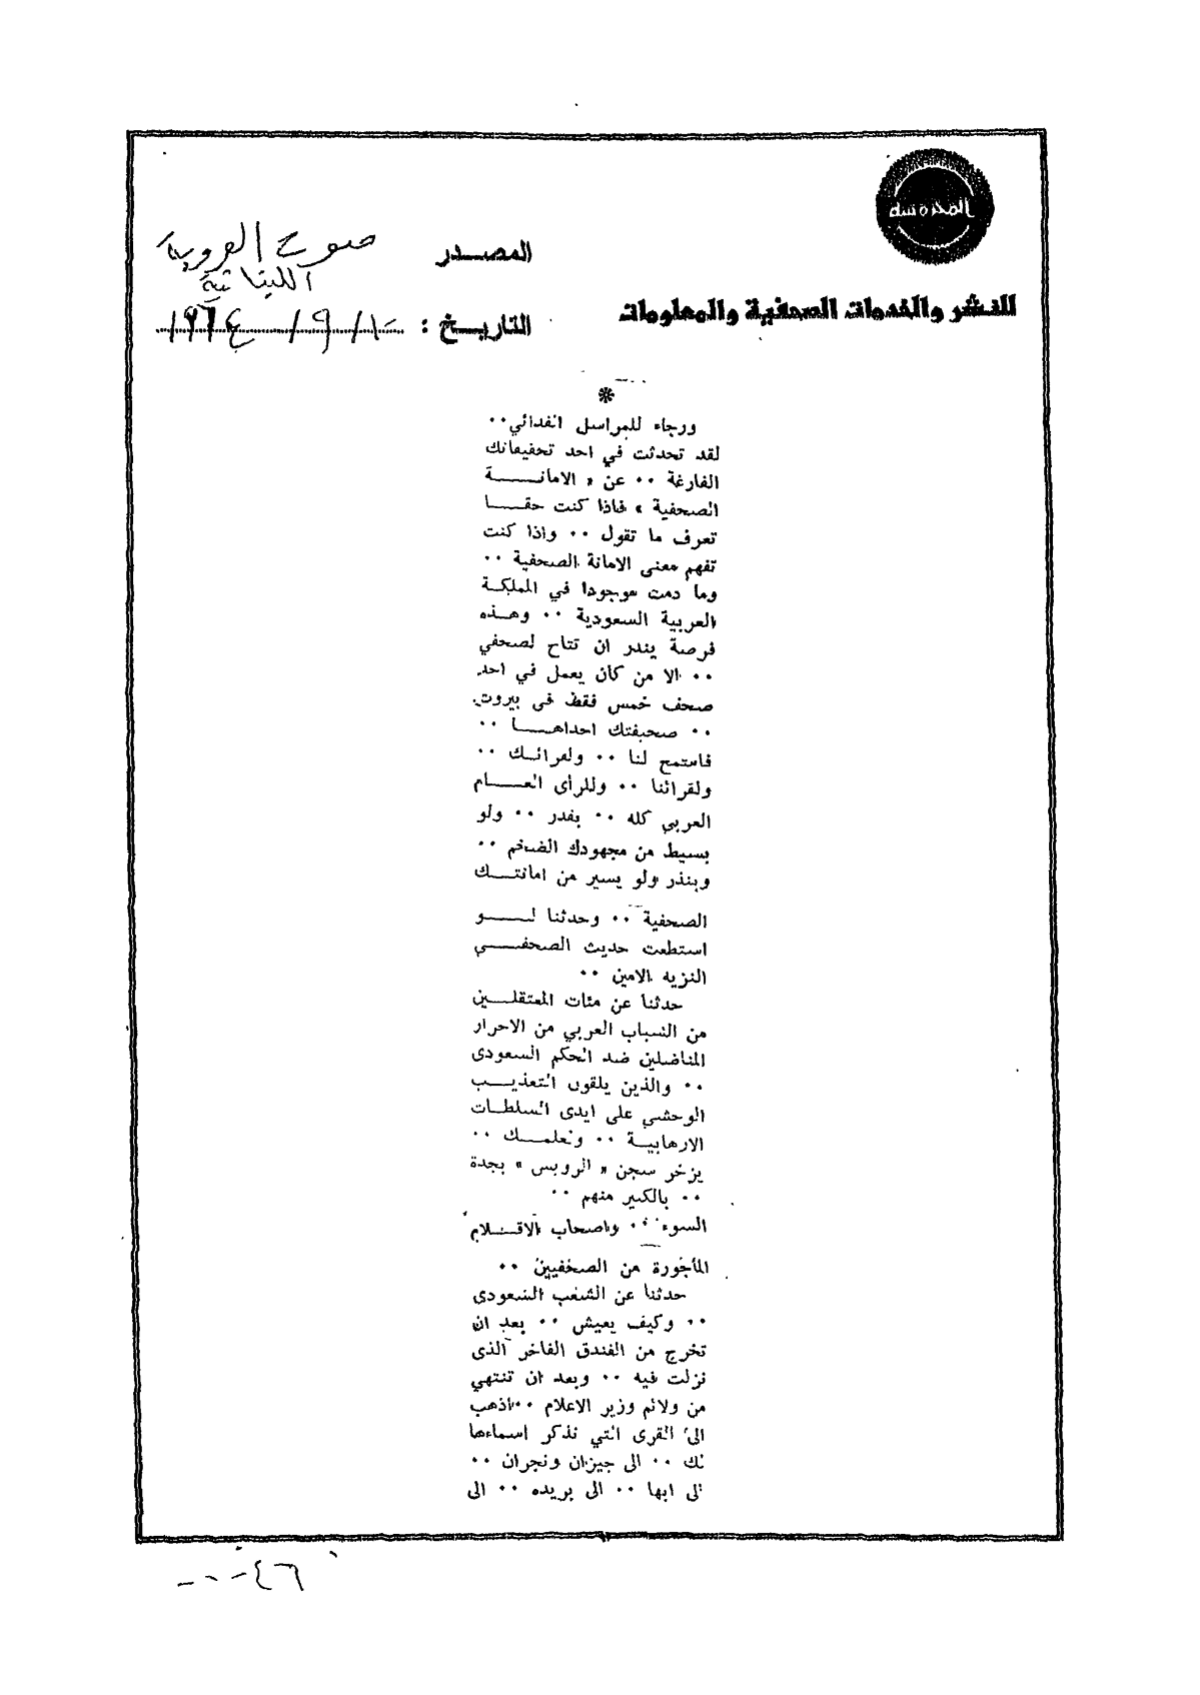 المحروسة
المصدر صوت العروبة
اللبنانية
للنشر والخدمات الصحفية والمعلومات
التاريخ : ١٠/٩/١٩٦٤
*
ورجاء للمراسل الفدائي ..
لقد تحدثت في احد تحقيقاتك
الفارغة .. عن « الامانة
الصحفية » فاذا كنت حقا
تعرف ما تقول .. واذا كنت
تفهم معنى الامانة الصحفية ..
وما دمت موجودا في المملكة
العربية السعودية .. وهذه
فرصة يندر ان تتاح لصحفي
.. الا من كان يعمل في احد
صحف خمس فقط في بيروت
.. صحيفتك احداها ..
فاسمح لنا .. ولقرائك ..
ولقرائنا .. وللرأى العام
العربي كله .. بقدر .. ولو
بسيط من مجهودك الضخم ..
وبنذر ولو يسير من امانتك
الصحفية .. وحدثنا لو
استطعت حديث الصحفي
النزيه الامين ..
حدثنا عن مئات المعتقلين
من الشباب العربي من الاحرار
المناضلين ضد الحكم السعودى
.. والذين يلقون التعذيب
الوحشي على ايدى السلطات
الارهابية .. ونعلمك ..
يزخر سجن « الرويس » بجدة
.. بالكثير منهم ..
السوء .. واصحاب الاقلام
المأجورة من الصحفيين ..
حدثنا عن الشعب السعودى
.. وكيف يعيش .. بعد ان
تخرج من الفندق الفاخر الذى
نزلت فيه .. وبعد ان تنتهي
من ولائم وزير الاعلام .. اذهب
الى القرى التي نذكر اسماءها
لك .. الى جيزان ونجران ..
الى ابها .. الى بريده .. الى